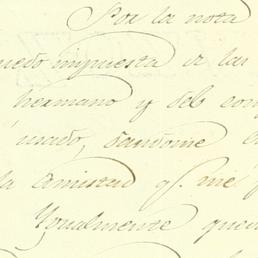 Por la nota
quedo impuesta a las
hermano y del con
mado, dandome
la amistad q. me
Ygualmente qued